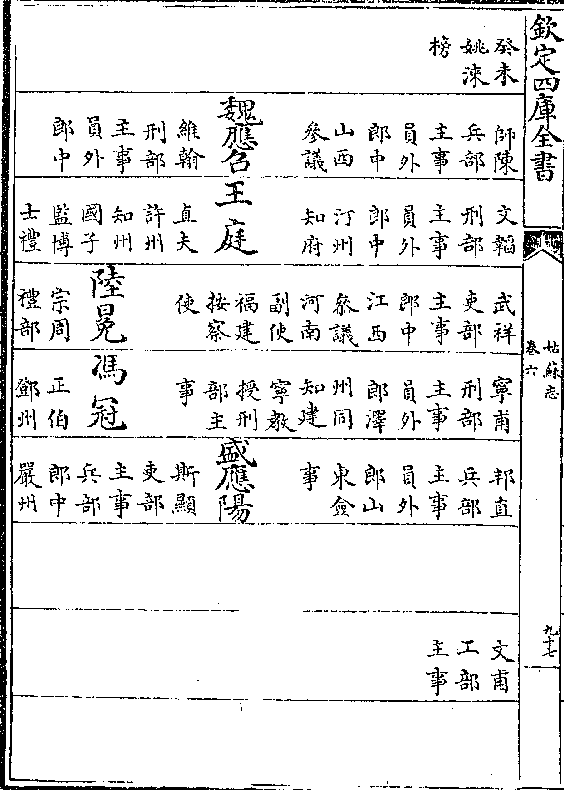 欽定四庫全書
姑蘇志
卷六
九十七
癸未
姚淶
榜
師陳
兵部
主事
員外
郎中
山西
參議
魏應召
維翰
刑部
主事
員外
郎中
文韜
刑部
主事
員外
郎中
汀州
知府
王庭
直夫
許州
知州
國子
監博
士禮
武祥
吏部
主事
郎中
江西
叅議
河南
副使
福建
按察
使
陸冕
宗周
禮部
寧甫
刑部
主事
員外
郎澤
州同
知建
寧敎
授刑
部主
事
馮冠
正伯
鄧州
邦直
兵部
主事
員外
郎山
東僉
事
盛應陽
斯顯
吏部
主事
兵部
郎中
嚴州
文甫
工部
主事